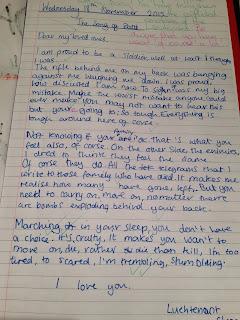 Wednesday 19th November 2013
The Song of Battle
Dear my loved ones,
I am proud to be a soldier, well at least I thought
I was.
The rifle behind me on my back was banging
against me laughing me down. I was proud,
how disgusted I am now. To sign was my big
mistake. Maybe the worst mistake anyone could
ever make. You may not want to hear but
but your going to. So tough. Everything is
tough around here of corse.
Not knowing if your family are ok that is what you
feel also, of corse. On the other side the enimies,
I dread to think they feel the same.
Of corse they do all the telegrams that I
write to those famely who have died it makes me
realise how many have gone, left. But you
need to carry on, move on, no matter there
are bombs exploding behind your back.
Marching in your sleep, you don't have
a choice. It's, cruity, it makes you wan't to
move on, die, rather die than kill, I'm too
tired, to scared, I'm trembling, stumbolding.
I love you.
Luchtenant